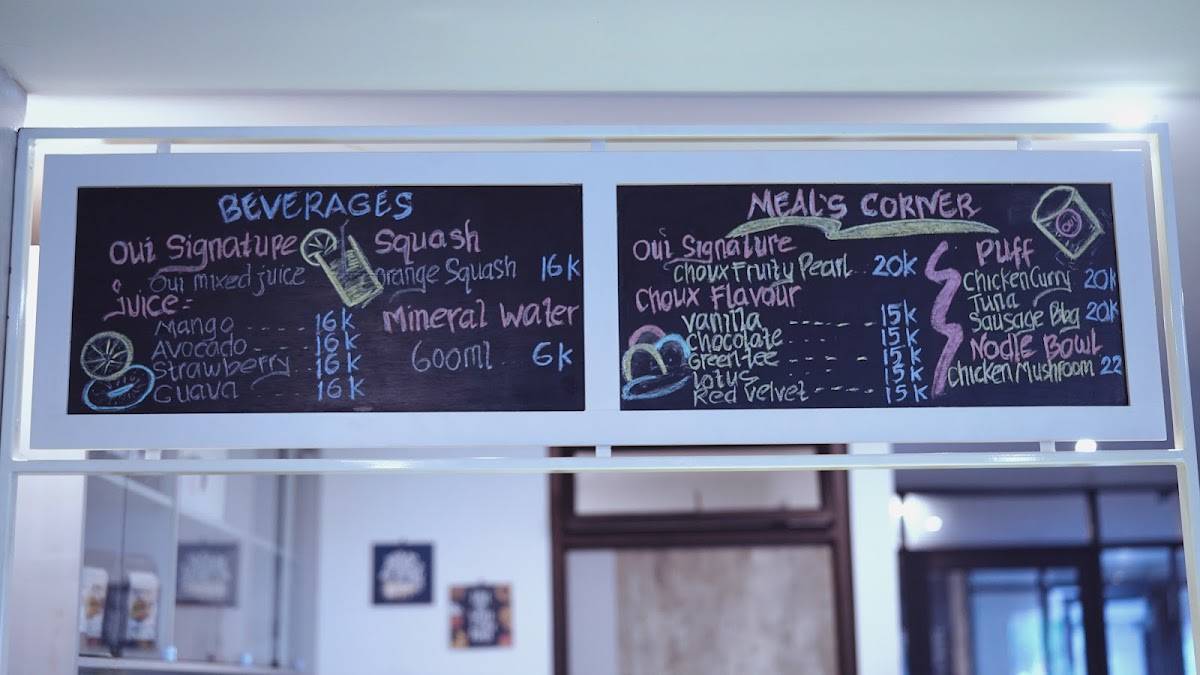 BEVERAGES
Oui Signature
Oui mixed juice
Juice:
Mango ----- 16k
Avocado ---- 16k
Strawberry 16k
Guava 16k
Squash
orange Squash 16k
Mineral water
600ml 6k
MEAL'S CORNER
Oui Signature
Choux Fruity Pearl 20k
Choux Flavour
Vanilla 15k
Chocolate 15k
Green tee 15k
Lotus 15k
Red velvet 15k
Oui
Puff
Chicken Curry 20k
Tuna
Sausage Bbq 20k
Nodle Bowl
Chicken Mushroom 22